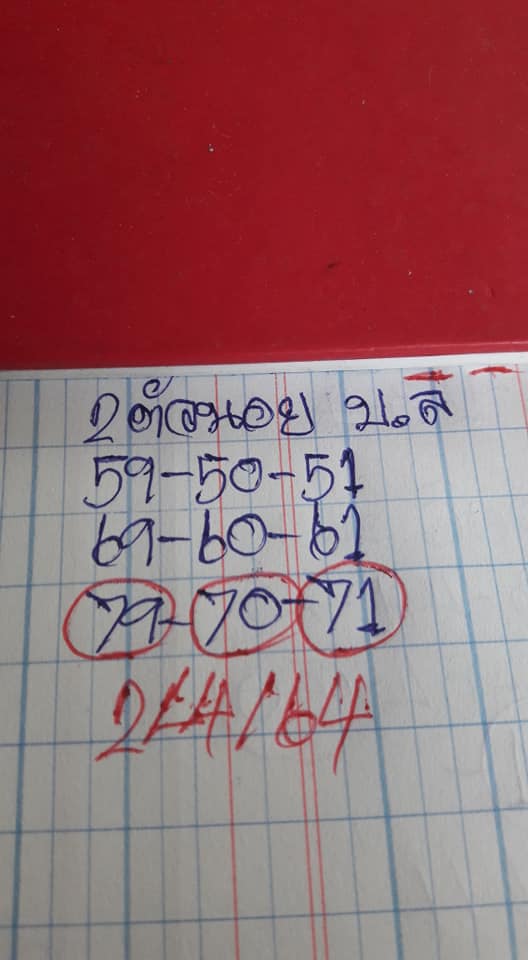 2ตัวนอย บ.ล
59-50-51
69-60-61
79-70-71
2/4/64